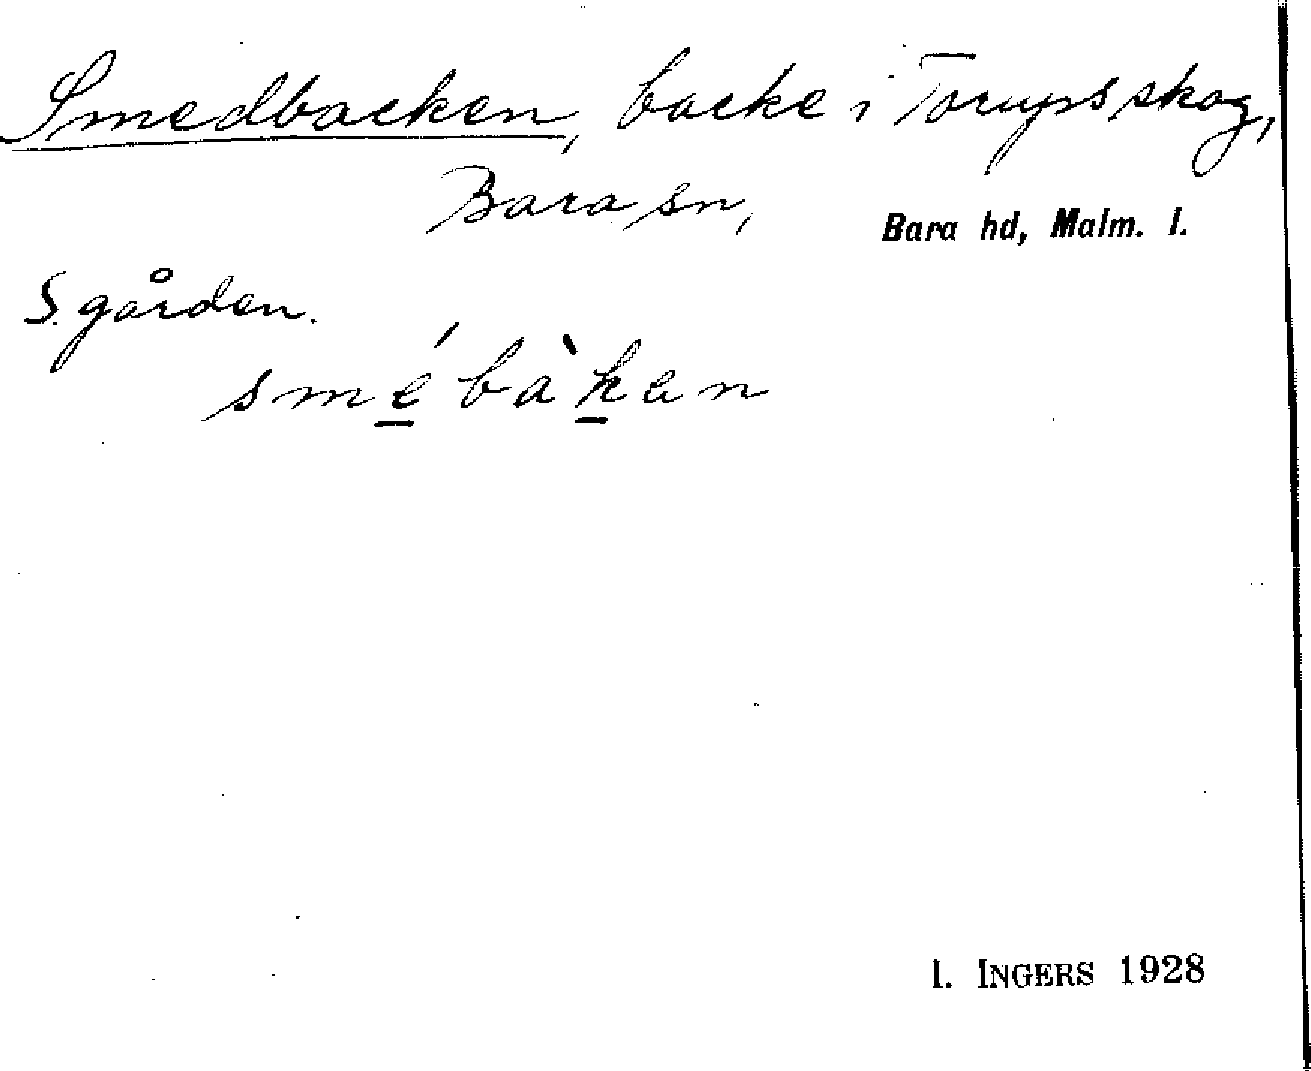 Smedbacken, backe i Torups skog,
Bara sn, Bara hd, Malm. l.
S. gården.
smé̲bàk̲en
I. INGERS 1928